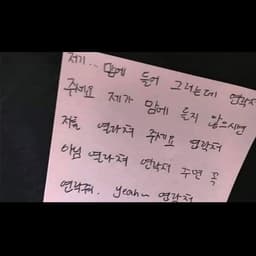 저기... 맘에 들어 그러는데 연락처
주세요 제가 맘에 들지 않으시면
저를 연락처 주세요 연락처
아님 연락처 연락처 주면 꼭
연락줘. yeah~ 연락처